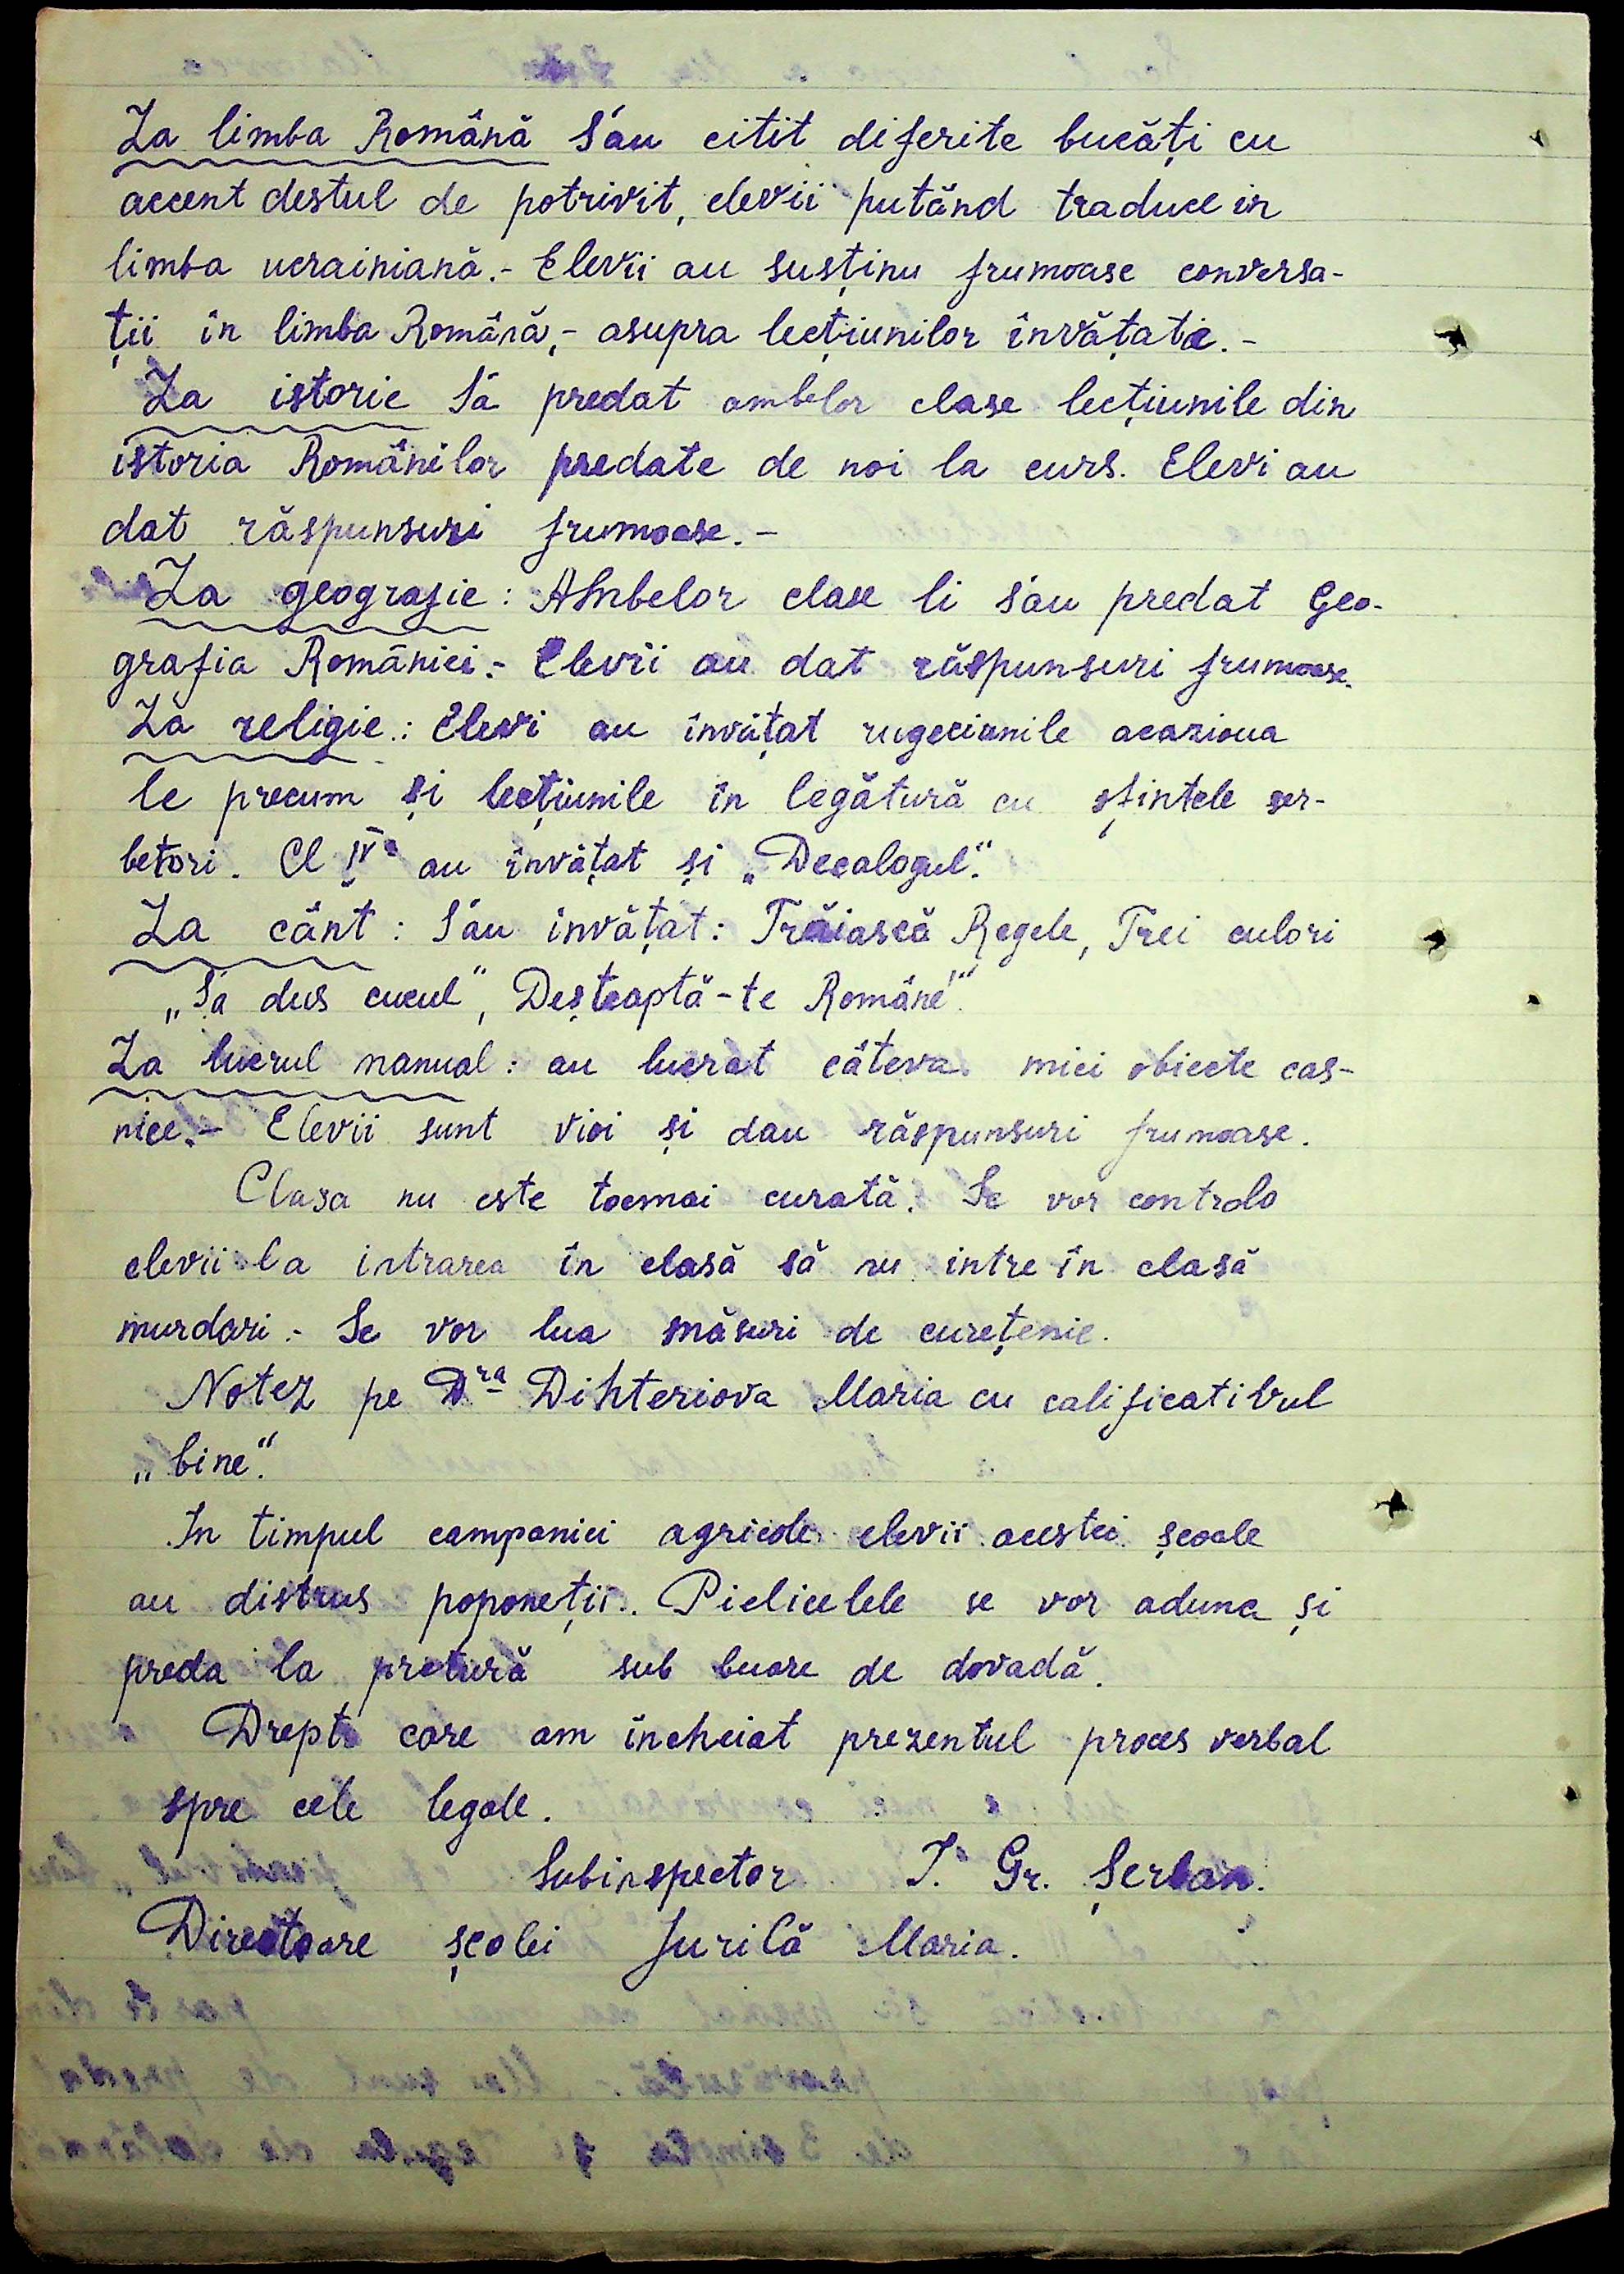 La limba Română S'au citit diferite bucăți cu
accent destul de potrivit, elevii putănd traduce in
limba ucrainiană.- Elevii au susținu frumoase conversa-
ții în limba Română,- asupra lecțiunilor învățate.-
La istorie S'a predat ambelor clase lecțiunile din
istoria Românilor predate de noi la curs. Elevi au
dat răspunsuri frumoase.-
La geografie: Ambelor clase li s'au predat Geo-
grafia României.- Elevii au dat răspunsuri frumoase.
La religie: Elevi au învățat rugeciunile acaziona
le precum și lecțiunile în legătură cu sfintele ser-
betori. Cl IVa au învățat și „Decalogul".
La cânt: S'au învățat: Trăiască Regele, Trei culori
„S'a dus cucul", Deșteaptă-te Române".
La lucrul manual: au lucrat câteva mici obiecte cas-
nice.- Elevii sunt vioi și dau răspunsuri frumoase.
Clasa nu este tocmai curată. Se vor controla
elevii la intrarea în clasă să nu intre în clasă
murdari.- Se vor lua măsuri de curețenie.
Notez pe Dra Dihteriova Maria cu calificativul
„bine".
In timpul companiei agricole elevii acestei școale
au distrus poponeții. Pielicelele se vor aduna și
preda la pretură sub luare de dovadă.
Drept care am încheiat prezentul proces verbal
spre cele legale.
Subinspector I. Gr. Șerban.
Directoare școlei Jurilă Maria.